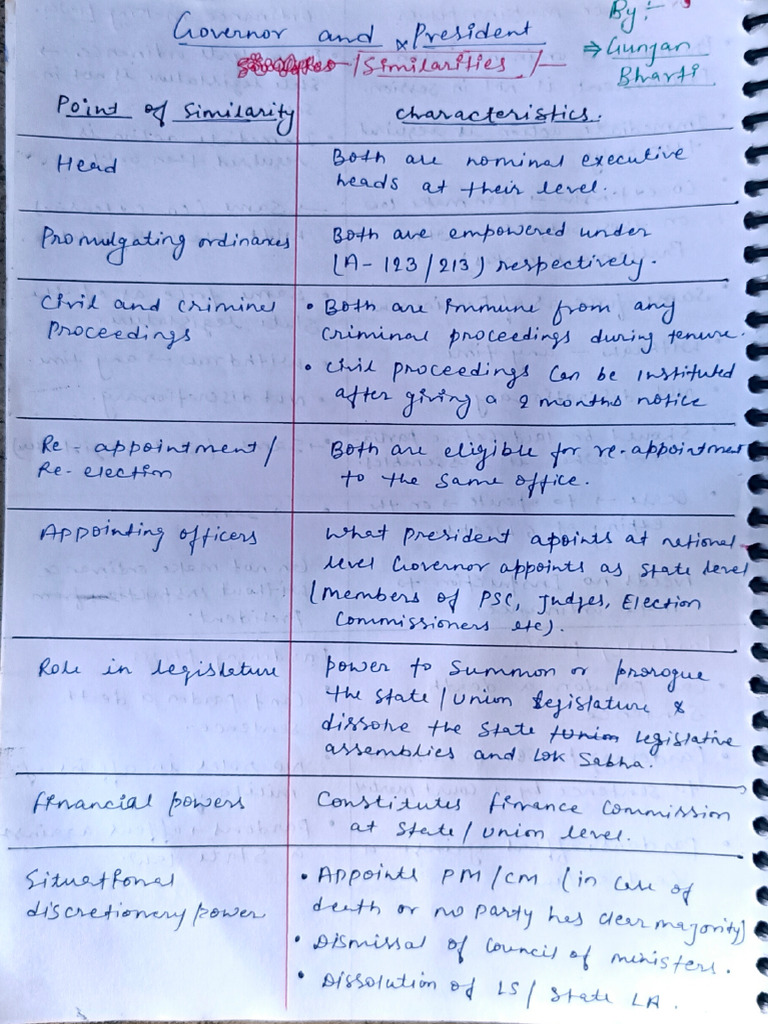 By:-
Governor and President
⇒ Gunjan
Similarities
Bharti
Point of Similarity
Characteristics.
Head
Both are nominal executive
heads at their level.
Promulgating ordinances
Both are empowered under
(A-123/213) respectively.
Civil and Crimines
Proceedings
• Both are immune from any
criminal proceedings during tenure.
• Civil proceedings can be instituted
after giving a 2 months notice
Re-appointment/
Re-election
Both are eligible for re-appointment
to the same office.
Appointing officers
What president apoints at national
level Governor appoints as state level
(Members of PSC, Judges, Election
Commissioners etc).
Role in legislature
power to Summon or prorogue
the state/union legislature &
dissolve the state union legislative
assemblies and Lok Sabha.
financial powers
Constitutes finance Commission
at State/union level.
Situational
discretionery power
• Appoints PM/CM (in case of
death or no party has clear majority)
• Dismissal of Council of ministers.
• Dissolution of LS/ State LA.